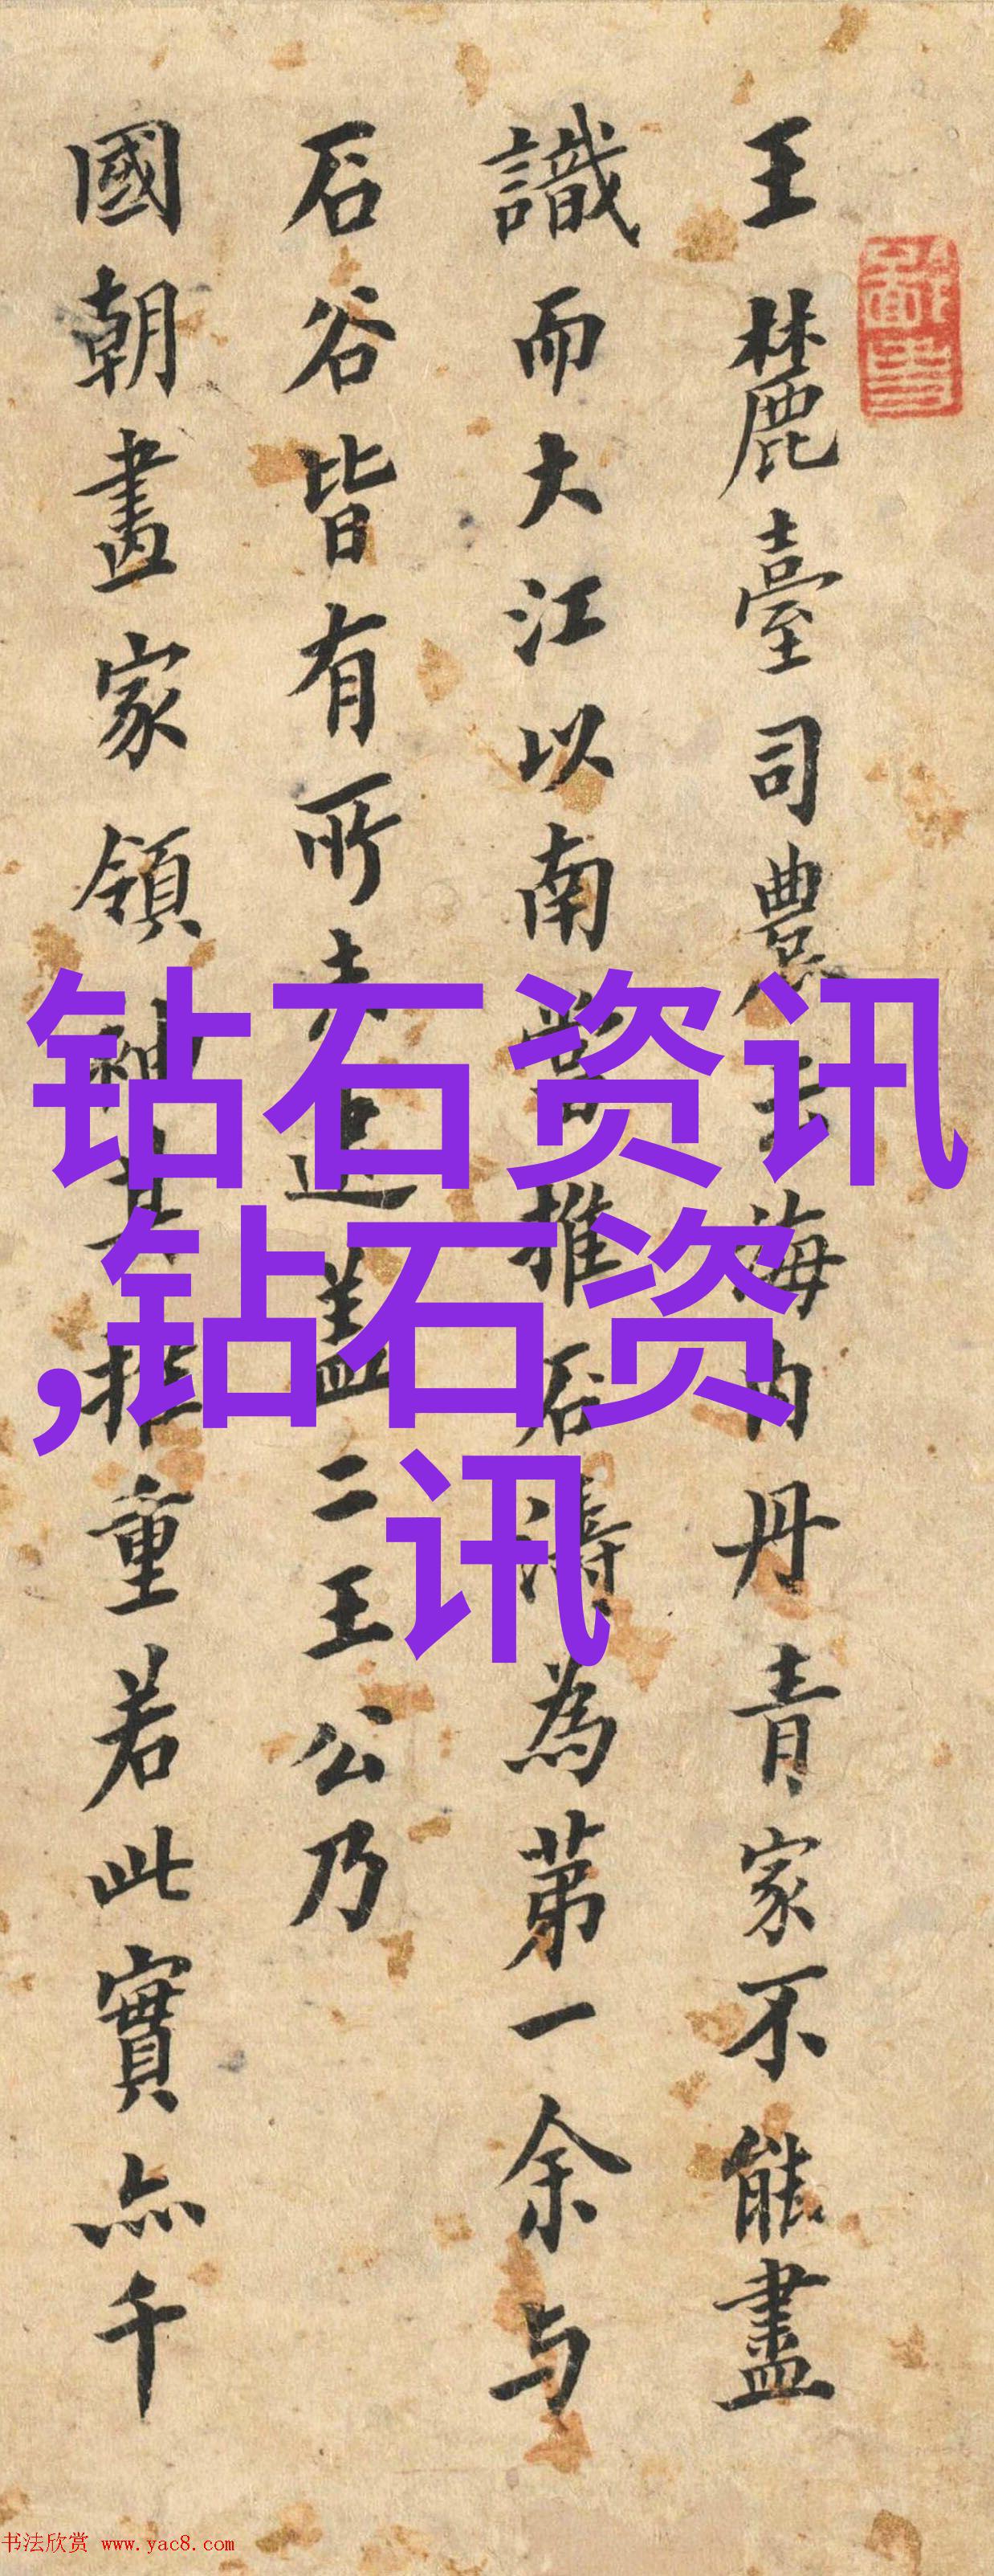 王麓臺司農云海內丹青家不能盡
識而大江以南當推石濤為第一余与
石谷皆有所未逮蓋二王公乃
國朝畫家領袖其推重若此實亦千
钻石资讯
,钻石资
讯
书法欣赏 www.yac8.com